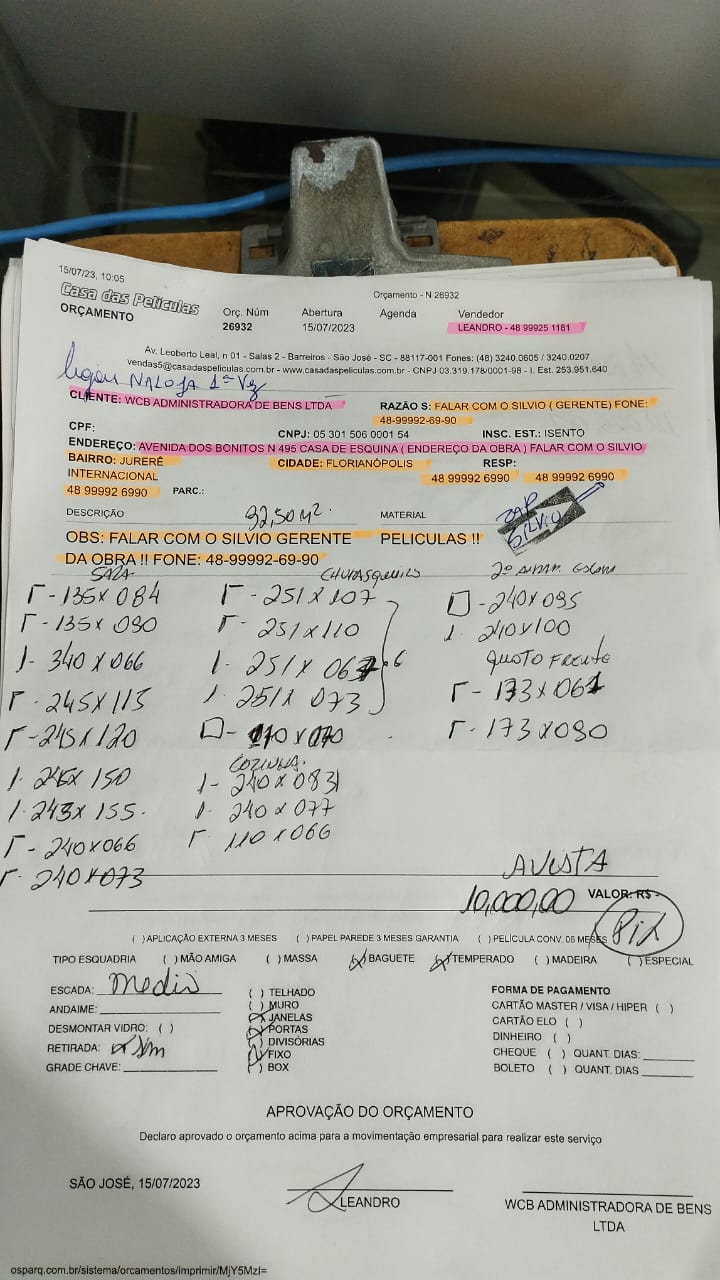 15/07/23, 10:05
Orçamento - N 26932
Casa das Películas
ORÇAMENTO
Orç. Núm Abertura Agenda Vendedor
26932 15/07/2023 LEANDRO - 48 99925 1181
Av. Leoberto Leal, n 01 - Salas 2 - Barreiros - São José - SC - 88117-001 Fones: (48) 3240.0605 / 3240.0207
vendas5@casadaspeliculas.com.br - www.casadaspeliculas.com.br - CNPJ 03.319.178/0001-98 - I. Est. 253.951.640
ligou NA LOJA 1ª Vez
CLIENTE: WCB ADMINISTRADORA DE BENS LTDA RAZÃO S: FALAR COM O SILVIO ( GERENTE) FONE:
48-99992-69-90
CPF: CNPJ: 05 301 506 0001 54 INSC. EST.: ISENTO
ENDEREÇO: AVENIDA DOS BONITOS N 495 CASA DE ESQUINA ( ENDEREÇO DA OBRA ) FALAR COM O SILVIO
BAIRRO: JURERÊ CIDADE: FLORIANÓPOLIS RESP:
INTERNACIONAL 48 99992 6990 48 99992 6990
48 99992 6990 PARC.:
DESCRIÇÃO 92,50 m² MATERIAL ZAP SILVIO
OBS: FALAR COM O SILVIO GERENTE PELICULAS !!
DA OBRA !! FONE: 48-99992-69-90
SALA CHURASQUEIRO 2º ANDAR
Γ - 135 x 084 Γ - 251 x 107 □ - 240 x 095
Γ - 135 x 090 Γ - 251 x 110 1 240 x 100
1 - 340 x 066 1 - 251 x 06 QUATO FRENTE
Γ - 245 x 115 1 - 251 x 073 Γ - 173 x 061
Γ - 245 x 120 □ - 110 x 070 Γ - 173 x 090
COZINHA.
1 - 245 x 150 1 - 240 x 083
1 - 243 x 155 1 - 240 x 077
Γ - 240 x 066 Γ 110 x 066
Γ - 240 x 073
AVISTA
10,000,00 VALOR: R$ -
Pix
( )APLICAÇÃO EXTERNA 3 MESES ( ) PAPEL PAREDE 3 MESES GARANTIA ( )PELÍCULA CONV. 06 MESES
TIPO ESQUADRIA ( ) MÃO AMIGA ( ) MASSA (X) BAGUETE (X) TEMPERADO ( ) MADEIRA ( ) ESPECIAL
ESCADA: Medio ( ) TELHADO FORMA DE PAGAMENTO
ANDAIME: ( ) MURO CARTÃO MASTER / VISA / HIPER ( )
(X) JANELAS CARTÃO ELO ( )
DESMONTAR VIDRO: ( ) (X) PORTAS DINHEIRO ( )
RETIRADA: x sim ( ) DIVISÓRIAS CHEQUE ( ) QUANT. DIAS:
(X) FIXO BOLETO ( ) QUANT. DIAS
GRADE CHAVE: ( ) BOX
APROVAÇÃO DO ORÇAMENTO
Declaro aprovado o orçamento acima para a movimentação empresarial para realizar este serviço
SÃO JOSÉ, 15/07/2023
LEANDRO WCB ADMINISTRADORA DE BENS
LTDA
osparq.com.br/sistema/orcamentos/imprimir/MjY5MzI=